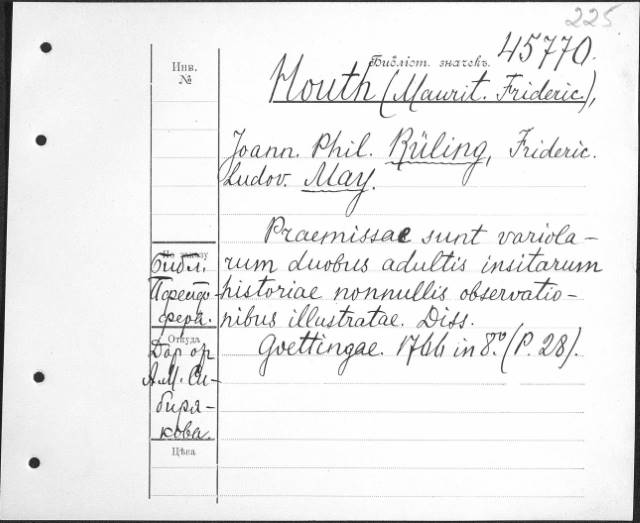 225.
45770.
Инв.
№
Библіот. значекъ.
Houth (Maurit. Frideric),
Joann. Phil. Rüling, Frideric.
Ludov. May.
Praemissae sunt variola-
rum duobus adultis insitarum
historiae nonnullis observatio-
nibus illustratae. Diss.
Goettingae. 1766 in 8.º (P. 28).
Библ.
Пфейф-
фера.
Откуда
Дар от
А.М. Си-
биря-
кова.
Цѣна